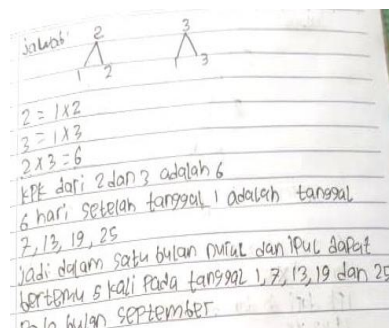 Jawab: 2 3
1 2 1 3
2 = 1x2
3 = 1x3
2x3 = 6
KPK dari 2 dan 3 adalah 6
6 hari setelah tanggal 1 adalah tanggal
7, 13, 19, 25
Jadi dalam satu bulan nurul dan ipul dapat
bertemu 5 kali pada tanggal 1, 7, 13, 19 dan 25
bulan september